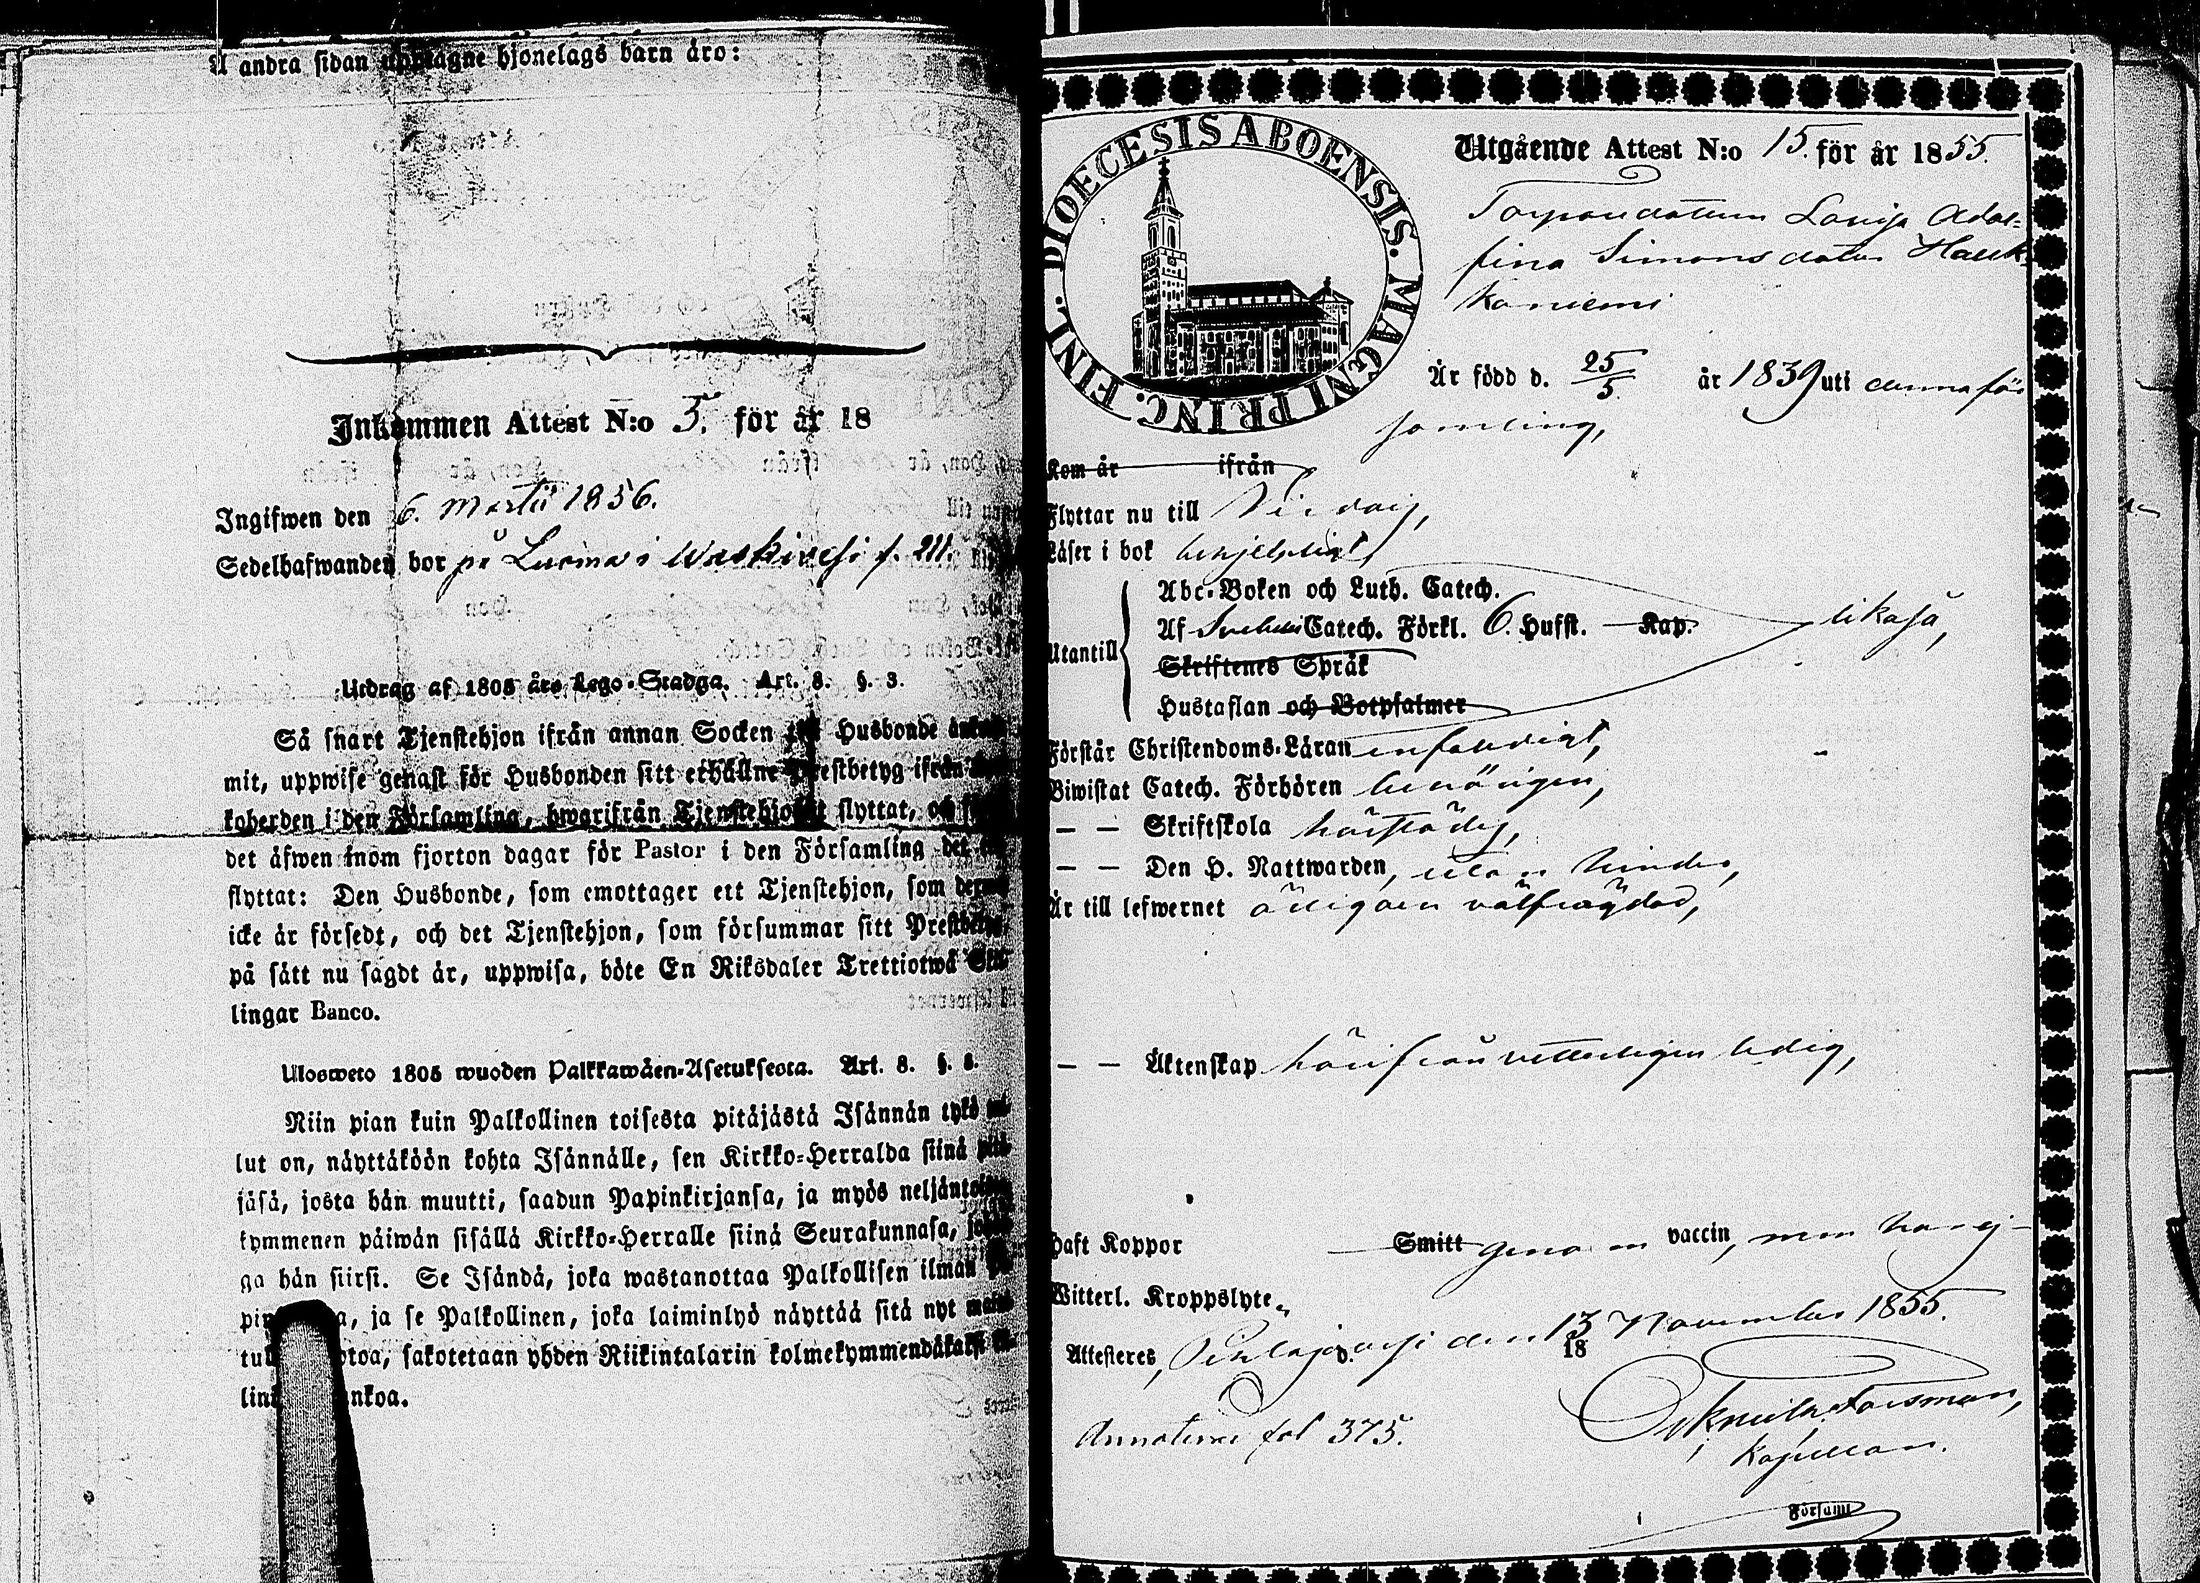 Å andra sidan upptagne hjonelags barn äro:
Inkommen Attest N:o 5. för år 18
Ingifwen den 6. Martii 1856.
Sedelhafwanden bor på Luoma i Waskivesi f. 211.
Utdrag af 1805 års Lego-Stadga. Art. 8. §. 3.
Så snart Tjenstehjon ifrån annan Socken till Husbonde ankom-
mit, uppwise genast för Husbonden sitt erhållne Prestbetyg ifrån
koherden i den Församling, hwarifrån Tjenstehjonet flyttat, och
det äfwen inom fjorton dagar för Pastor i den Församling det
flyttat: Den Husbonde, som emottager ett Tjenstehjon, som dermed
icke är försedt, och det Tjenstehjon, som försummar sitt Prestbetyg,
på sätt nu sagdt är, uppwisa, böte En Riksdaler Trettiotwå Skil-
lingar Banco.
Ulosweto 1805 wuoden Palkkawäen-Asetuksesta. Art. 8. §. 3.
Niin pian kuin Palkollinen toisesta pitäjästä Isännän tykö
lut on, näyttäköön kohta Isännälle, sen Kirkko-Herralda siinä pitä-
jäsä, josta hän muutti, saadun Papinkirjansa, ja myös neljäntoista-
kymmenen päiwän sisällä Kirkko-Herralle siinä Seurakunnasa,
ga hän siirsi. Se Isändä, joka wastanottaa Palkollisen ilman
ja se Palkollinen, joka laiminlyö näyttää sitä nyt
sakotetaan yhden Riikintalarin kolmekymmendäkaksi
DIOECESIS ABOENSIS. MAGNI PRINC. FINL.
Utgående Attest N:o 15. för år 1855.
Torpardottern Lovisa Adol-
fina Simonsdotter Hauk-
kaniemi
Är född d. 25/5 år 1839 uti denna för
samling,
Kom år ifrån
Flyttar nu till Virdois,
Läser i bok
Utantill
Abc-Boken och Luth. Catech.
Af Svebelii Catech. Förkl. 6. Hufst. Kap.
likaså,
Skriftenes Språk
Hustaflan och Botpsalmer
Förstår Christendoms-Läran enfaldigt,
Biwistat Catech. Förhören behörigen,
— — Skriftskola härstädes,
— — Den H. Nattwarden, utan hinder,
Är till lefwernet ärligen välfrägdad,
— — Äktenskap härifrån vetterligen ledig,
Haft Koppor Smitt genom vaccin, men har ej
Witterl. Kroppslyte.
Attesteres, d. 18 den 13 November 1855.
Annoteras fol 375.
Forsman,
Kapellan.
Församl